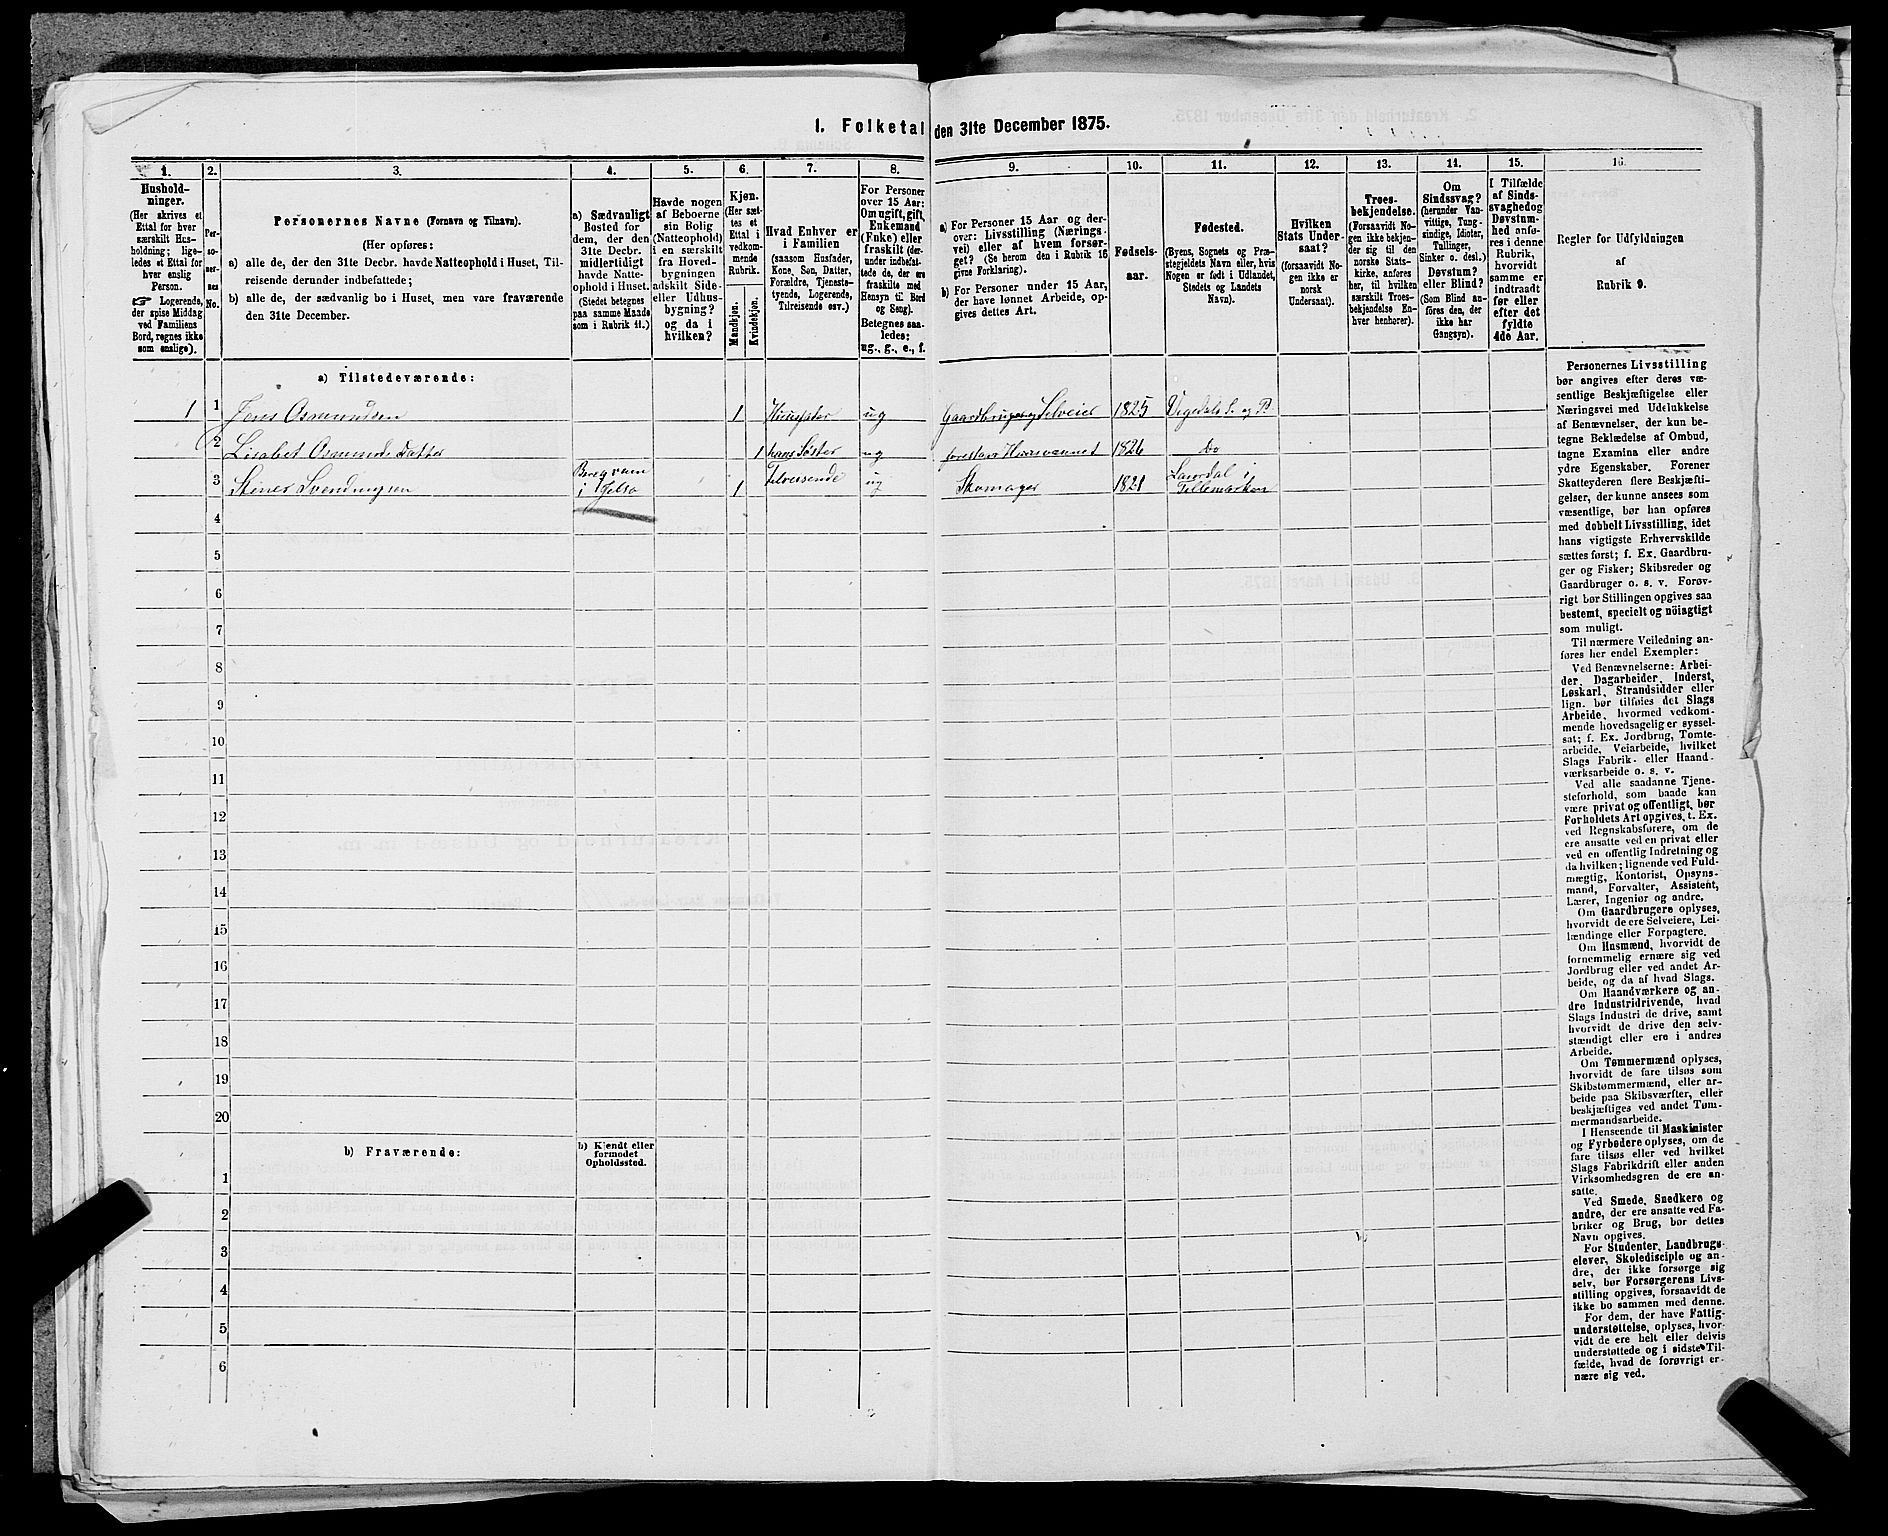 1. Folketal den 31te December 1875.
1. 2. 3. 4. 5. 6. 7. 8. 9. 10. 11. 12. 13. 14. 15. 16.
Hushold-
ninger.
(Her skrives et
Ettal for hver
særskilt Hus-
holdning; lige-
ledes et Ettal for
hver enslig
Person.
☞ Logerende,
der spise Middag
ved Familiens
Bord, regnes ikke
som enslige).
Per-
so-
ner-
nes
No.
Personernes Navne (Fornavn og Tilnavn).
(Her opføres:
a) alle de, der den 31te Decbr. havde Natteophold i Huset, Til-
reisende derunder indbefattede;
b) alle de, der sædvanlig bo i Huset, men vare fraværende
den 31te December.
a) Sædvanligt
Bosted for
dem, der den
31te Decbr.
midlertidigt
havde Natte-
ophold i Huset.
(Stedet betegnes
paa samme Maade
som i Rubrik 11.)
Havde nogen
af Beboerne
sin Bolig
(Natteophold)
i en særskilt
fra Hoved-
bygningen
adskilt Side-
eller Udhus-
bygning?
og da i
hvilken?
Kjøn.
(Her sæt-
tes et
Ettal i
vedkom-
mende
Rubrik.
Mandkjøn.
Kvindekjøn.
Hvad Enhver er
i Familien
(saasom Husfader,
Kone, Søn, Datter,
Forældre, Tjeneste-
tyende, Logerende,
Tilreisende osv.)
For Personer
over 15 Aar:
Om ugift, gift,
Enkemand
(Enke) eller
fraskilt (der-
under indbefat-
tede de, der ere
fraskilte med
Hensyn til Bord
og Seng).
Betegnes saa-
ledes:
ug., g., e., f.
a) For Personer 15 Aar og der-
over: Livsstilling (Nærings-
vei) eller af hvem forsør-
get? (Se herom den i Rubrik 16
givne Forklaring).
b) For Personer under 15 Aar,
der have lønnet Arbeide, op-
gives dettes Art.
Fødsels-
aar.
Fødested.
(Byens, Sognets og Præ-
stegjeldets Navn eller, hvis
Nogen er født i Udlandet,
Stedets og Landets
Navn).
Hvilken
Stats Under-
saat?
(forsaavidt No-
gen ikke er
norsk
Undersaat).
Troes-
bekjendelse.
(Forsaavidt No-
gen ikke bekjen-
der sig til den
norske Stats-
kirke, anføres
her, til hvilken
særskilt Troes-
bekjendelse En-
hver henhører).
Om
Sindssvag?
(herunder Van-
vittige, Tung-
sindige, Idioter,
Tullinger,
Sinker o. desl.)
Døvstum?
eller Blind?
(Som Blind an-
føres den, der
ikke har
Gangsyn).
I Tilfælde
af Sinds-
svaghed og
Døvstum-
hed anfø-
res i denne
Rubrik,
hvorvidt
samme er
indtraadt
før eller
efter det
fyldte
4de Aar.
Regler for Udfyldningen
af
Rubrik 9.
a) Tilstedeværende:
1 1 Jens Osmundsen 1 Huusfader ug Gaardbruger og Selveier 1825 Vigedals S. og P.
2 Lisabet Osmunds Datter 1 hans Søster ug forestaar Huusvæsnet 1826 Do
3 Steiner Svendungsen i Jelsø 1 Tilreisende ug Skomager 1821 Laurdal i Tellemarken
4
5
6
7
8
9
10
11
12
13
14
15
16
17
18
19
20
b) Fraværende:
b) Kjendt eller
formodet
Opholdssted.
1
2
3
4
5
6
Personernes Livsstilling
bør angives efter deres væ-
sentlige Beskjæftigelse eller
Næringsvei med Udelukkelse
af Benævnelser, der kun be-
tegne Beklædelse af Ombud,
tagne Examina eller andre
ydre Egenskaber. Forener
Skatteyderen flere Beskjæfti-
gelser, der kunne ansees som
væsentlige, bør han opføres
med dobbelt Livsstilling, idet
hans vigtigste Erhvervskilde
sættes først; f. Ex. Gaardbru-
ger og Fisker; Skibsreder og
Gaardbruger o. s. v. Forøv-
rigt bør Stillingen opgives saa
bestemt, specielt og nöiagtigt
som muligt.
Til nærmere Veiledning an-
føres her endel Exempler:
Ved Benævnelserne: Arbei-
der, Dagarbeider, Inderst,
Løskarl, Strandsidder eller
lign. bør tilføies det Slags
Arbeide, hvormed vedkom-
mende hovedsagelig er syssel-
sat; f. Ex. Jordbrug, Tomte-
arbeide, Veiarbeide, hvilket
Slags Fabrik- eller Haand-
værksarbeide o. s. v.
Ved alle saadanne Tjene-
steforhold, som baade kan
være privat og offentligt, bør
Forholdets Art opgives, t. Ex.
ved Regnskabsførere, om de
ere ansatte ved en privat eller
ved en offentlig Indretning og
da hvilken; lignende ved Fuld-
mægtig, Kontorist, Opsyns-
mand, Forvalter, Assistent,
Lærer, Ingeniør og andre.
Om Gaardbrugere oplyses,
hvorvidt de ere Selveiere, Lei-
lændinge eller Forpagtere.
Om Husmænd, hvorvidt de
fornemmelig ernære sig ved
Jordbrug eller ved andet Ar-
beide, og da af hvad Slags.
Om Haandværkere og an-
dre Industridrivende, hvad
Slags Industri de drive, samt
hvorvidt de drive den selv-
stændigt eller ere i andres
Arbeide.
Om Tømmermænd oplyses,
hvorvidt de fare tilsøs som
Skibstømmermænd, eller ar-
beide paa Skibsværfter, eller
beskjæftiges ved andet Tøm-
mermandsarbeide.
I Henseende til Maskinister
og Fyrbødere oplyses, om de
fare tilsøs eller ved hvilket
Slags Fabrikdrift eller anden
Virksomhedsgren de ere an-
satte.
Ved Smede, Snedkere og
andre, der ere ansatte ved Fa-
briker og Brug, bør dettes
Navn opgives.
For Studenter, Landbrugs-
elever, Skoledisciple og an-
dre, der ikke forsørge sig
selv, bør Forsørgerens Livs-
stilling opgives, forsaavidt de
ikke bo sammen med denne.
For dem, der have Fattig-
understøttelse, oplyses, hvor-
vidt de ere helt eller delvis
understøttede og i sidste Til-
fælde, hvad de forøvrigt er-
nære sig ved.